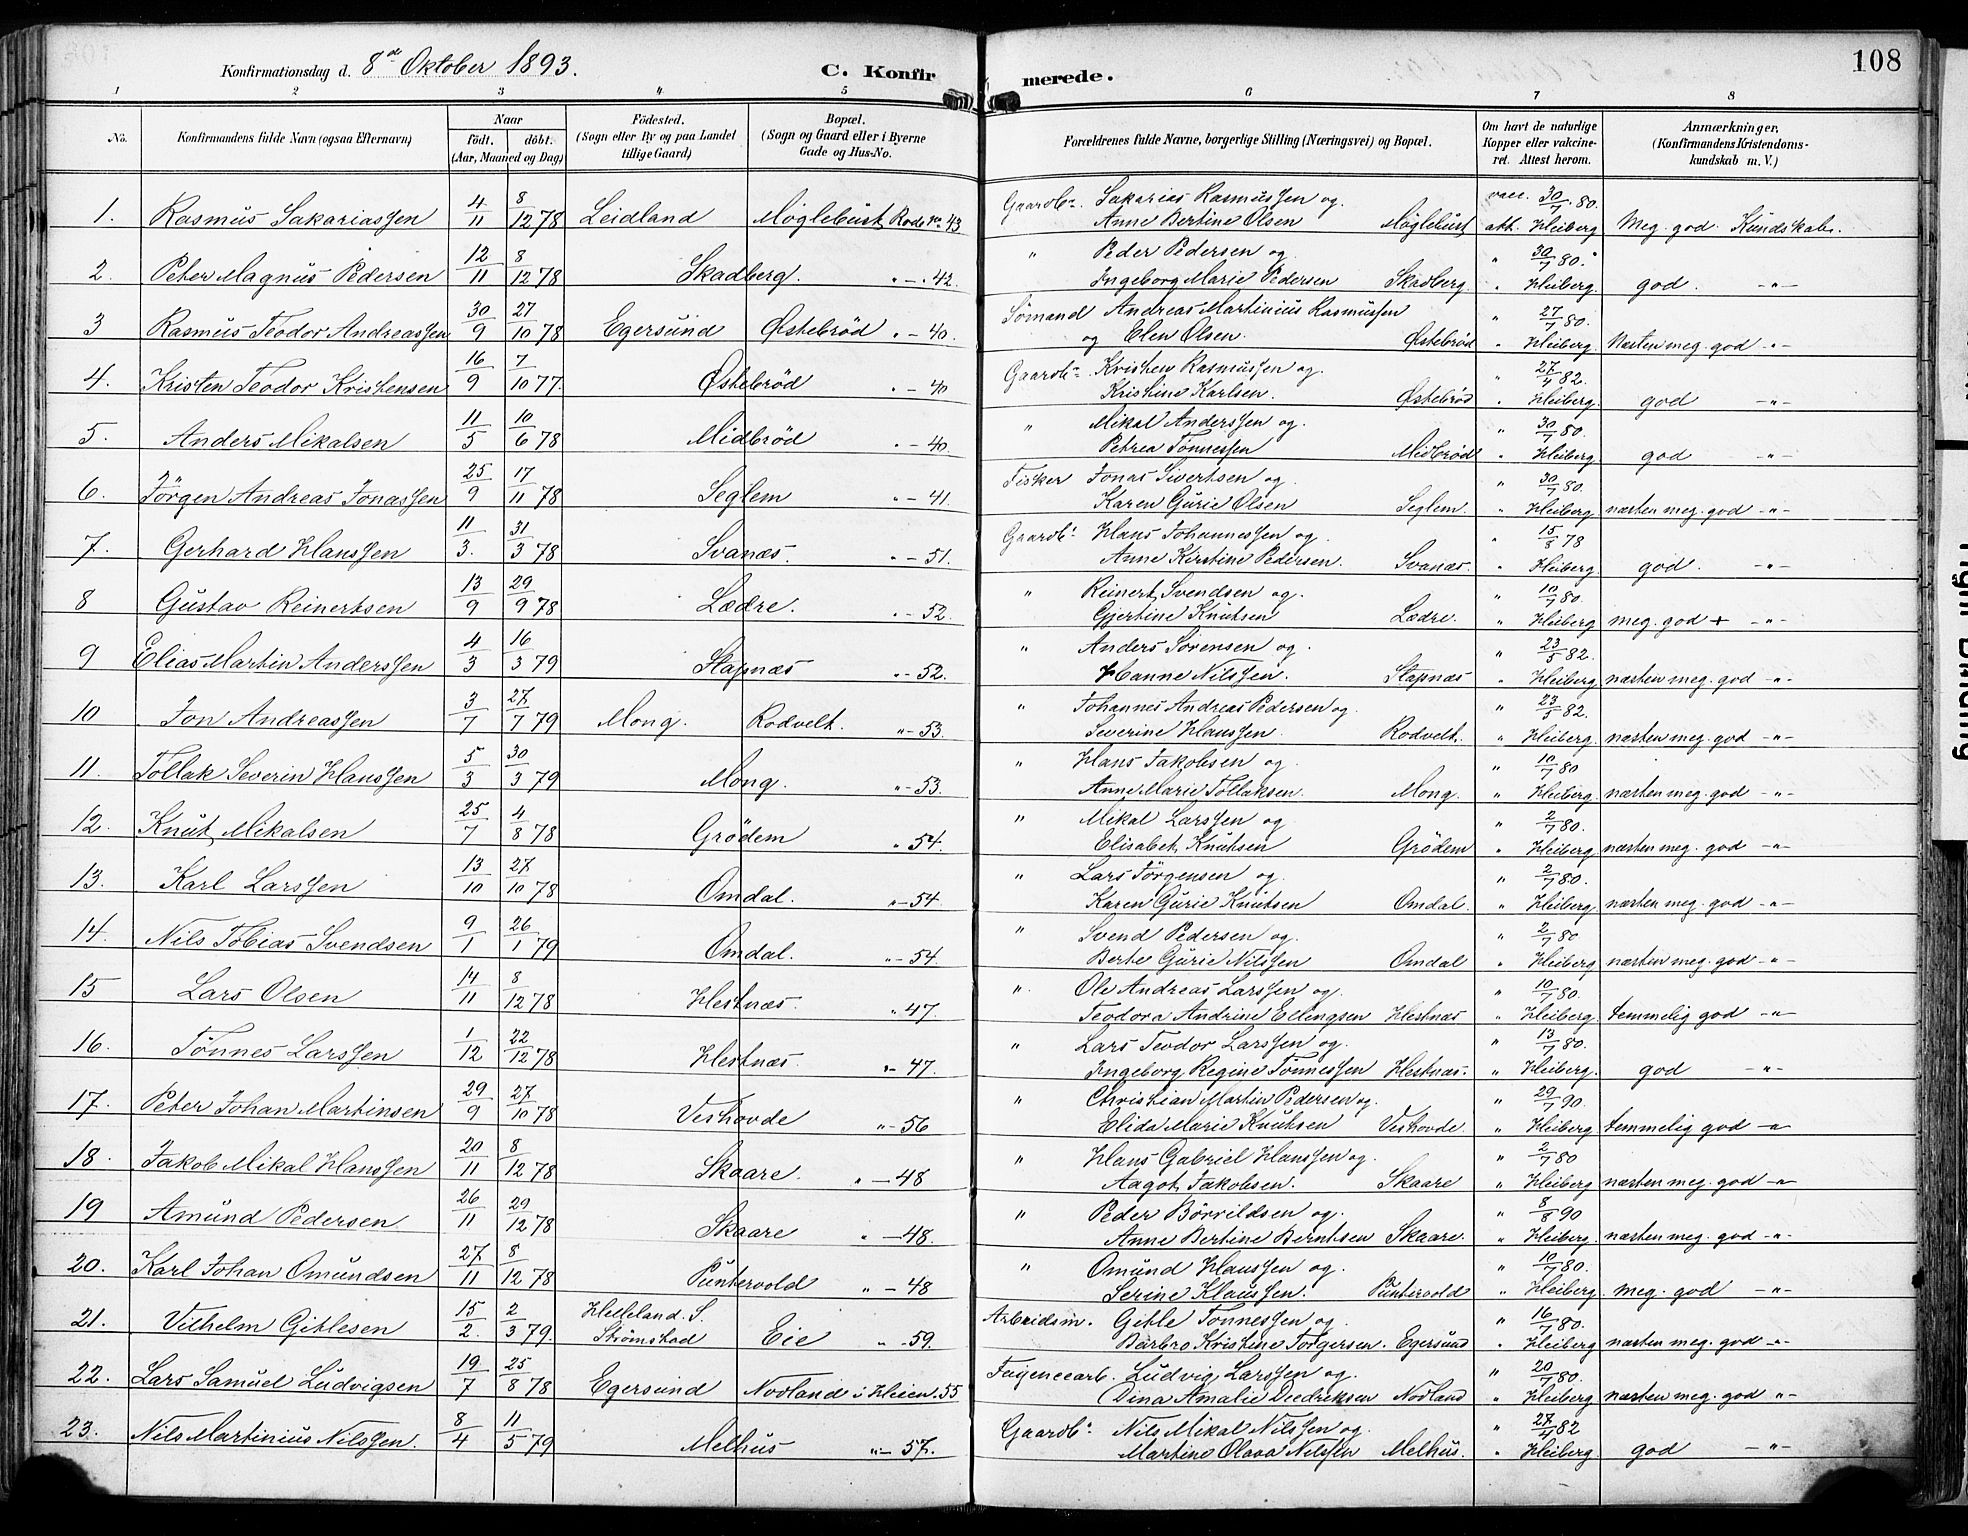 108
Konfirmationsdag d. 8de Oktober 1893. C. Konfirmerede.
1 2 3 4 5 6 7 8
No. Konfirmandens fulde Navn (ogsaa Efternavn) Naar født. døbt. (Aar, Maaned og Dag) Fødested. (Sogn eller By og paa Landet tillige Gaard) Bopæl. (Sogn og Gaard eller i Byerne Gade og Hus-No. Forældrenes fulde Navne, borgerlige Stilling (Næringsvei) og Bopæl. Om havt de naturlige Kopper eller vakcineret. Attest herom. Anmærkninger, (Konfirmandens Kristendomskundskab m. V.)
1. Rasmus Sakariassen 4/11 8/12 78 Leidland Møglebust Rode No 43 Gaardbr. Sakarias Rasmussen og Anne Bertine Olsen Møglebust vacc. 30/7 80. att. Heiberg Meg. god Kundskab.
2. Peter Magnus Pedersen 12/11 8/12 78 Skadberg. " - 42. " Peder Pedersen og Ingeborg Marie Pedersen Skadberg. " 30/7 80. " Heiberg. god. -"-
3 Rasmus Teodor Andreassen 30/9 27/10 78 Egersund Østebrød " - 40. Sømand Andreas Martinius Rasmussen og Elen Olsen. Østebrød " 27/7 80. " Heiberg. Næsten meg. god -"-
4. Kristen Teodor Kristensen 16/9 7/10 77. Østebrød " - 40 Gaardbr. Kristen Rasmussen og Kristine Karlsen. Østebrød " 27/4 82. " Heiberg. god -"-
5. Anders Mikalsen 11/5 10/6 78 Midbrød " - 40. " Mikal Anderssen og Petrea Tønnessen Midbrød " 30/7 80. " Heiberg. god -"-
6. Jörgen Andreas Jonassen 25/9 17/11 78 Seglem " - 41. Fisker Jonas Sivertsen og Karen Gurie Olsen Seglem. " 30/7 80. " Heiberg næsten meg. god -"-
7. Gerhard Hanssen 11/3. 31/3 78 Svanæs. " - 51. Gaardbr. Hans Johannessen og Anne Kirstine Pedersen. Svanæs. " 15/8 78 " Heiberg. god. -"-
8 Gustav Reinertsen 13/9 29/9 78 Lædre. " - 52. " Reinert Svendsen og Gjertine Knutsen Lædre. " 10/7 80. " Heiberg meg. god + -"-
9 Elias Martin Anderssen 4/3 16/3 79 Stapnæs " - 52. " Anders Sørensen og Hanne Nilssen. Stapnæs " 23/5 82. " Heiberg. næsten meg. god -"-
10 Jon Andreassen 3/7 27/7 79 Mong. Rodvelt. " - 53. " Johannes Andreas Pedersen og Severine Hanssen. Rodvelt. " 23/5 82. " Heiberg. næsten meg. god -"-
11. Tollak Severin Hanssen 5/3 30/3 79 Mong. " - 53. " Hans Jakobsen og Anne Marie Tollaksen. Mong. " 10/7 80 " Heiberg. næsten meg. god -"-
12. Knut Mikalsen 25/7 4/8 78 Grödem " - 54. " Mikal Larssen og Elisabet Knutsen Grödem " 2/7 80. " Heiberg. næsten meg. god -"-
13. Karl Larssen 13/10 27/10 78 Omdal. " - 54 " Lars Jörgensen og Karen Gurie Knutsen Omdal. " 2/7 80. " Heiberg. næsten meg. god -"-
14. Nils Tobias Svendsen 9/1 26/1 79 Omdal. " - 54. " Svend Pedersen og Berte Gurie Nilssen Omdal " 2/7 80 " Heiberg næsten meg. god -"-
15 Lars Olsen 14/11 8/12 78 Hestnæs. " 47. " Ole Andreas Larssen og Teodora Andrine Ellingsen Hestnæs " 10/7 80. " Heiberg. temmelig god -"-
16. Tönnes Larssen 1/12 22/12 78 Hestnæs " - 47. " Lars Teodor Larssen og Ingeborg Regine Tönnessen Hestnæs. " 13/7 80. " Heiberg. god -"-
17. Peter Johan Martinsen 29/9 27/10 78 Veshovde " - 56 " Christian Martin Pedersen og Elida Marie Knutsen Veshovde. " 29/7 90. " Heiberg temmelig god -"-
18. Jakob Mikal Hanssen 20/11 8/12 78 Skaare. " - 48 " Hans Gabriel Hanssen og Aagot Jakobsen. Skaare " 2/7 80 " Heiberg næsten meg. god -"-
19 Amund Pedersen 26/11 29/12 78 Skaare " - 48. " Peder Börrildsen og Anne Bertine Berntsen Skaare. " 8/8 90 " Heiberg. næsten meg. god -"-
20. Karl Johan Omundsen 27/11 8/12 78 Puntervold " - 48 " Omund Hanssen og Serine Klaussen. Puntervold " 10/7 80. " Heiberg. meg. god -"-
21. Vilhelm Gitlesen 15/2. 2/3 79. Helleland S. Strømstad Eie " - 59. Arbeidsm. Gitle Tönnessen og Barbro Kristine Torgersen. Egersund " 16/7 80. " Heiberg. næsten meg. god -"-
22. Lars Samuel Ludvigsen 19/7 25/8 78 Egersund Nodland i Heien. 55 Fajencearb. Ludvig Larssen og Dina Amalie Dredriksen Nodland " 20/7 80. " Heiberg næsten meg. god "-
23. Nils Martinius Nilssen. 8/4 11/5 79 Melhus " - 57. Gaardbr. Nils Mikal Nilssen og Martine Olava Nilssen Melhus. " 27/4 82 " Heiberg. god -"-